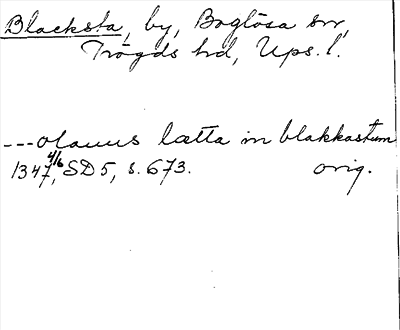 Blacksta, by, Boglösa sn,
Trögds hd, Ups. l.
---olauus lætta in blakkastum
1347 4/6, SD 5, s. 673. orig.